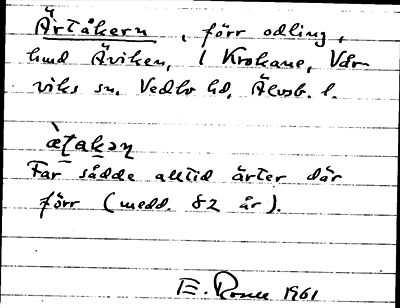 Ärtåkern, förr odling,
hmd Äviken, 1 Krokane, Vår-
viks sn, Vedbo hd, Älvsb. l.
ὰṭakən
Far sådde alltid ärter där
förr (medd. 82 år).
E. 1961